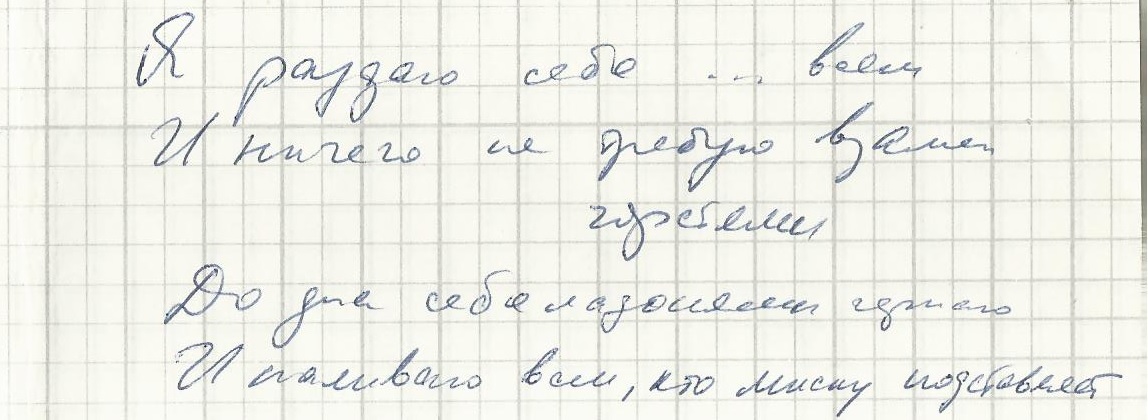 Я раздаю себя ... всем
И ничего не требую взамен
горстями
До дна себя ладонями черпаю
И наливаю всем, кто миску подставляет